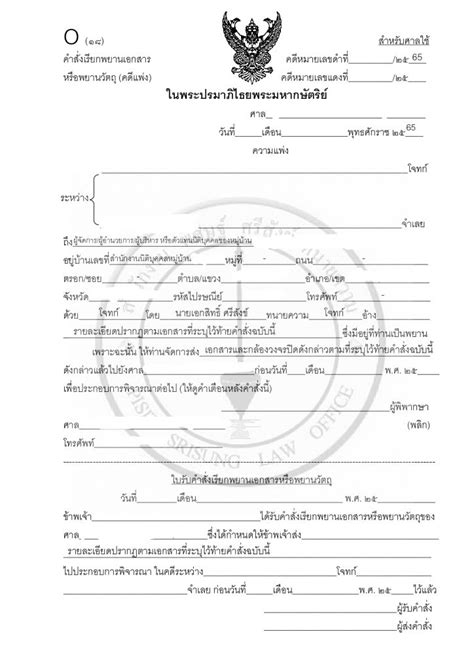 O (๑๘) สำหรับศาลใช้
คำสั่งเรียกพยานเอกสาร คดีหมายเลขดำที่ /๒๕ 65
หรือพยานวัตถุ (คดีแพ่ง) คดีหมายเลขแดงที่ /๒๕
ในพระปรมาภิไธยพระมหากษัตริย์
ศาล
วันที่ เดือน พุทธศักราช ๒๕65
ความแพ่ง
โจทก์
ระหว่าง
จำเลย
ถึง ผู้จัดการ/ผู้อำนวยการ/ผู้บริหาร หรือตัวแทนนิติบุคคลของหมู่บ้าน
อยู่บ้านเลขที่ สำนักงานนิติบุคคลหมู่บ้าน หมู่ที่ - ถนน -
ตรอก/ซอย - ตำบล/แขวง อำเภอ/เขต
จังหวัด รหัสไปรษณีย์ โทรศัพท์ -
ด้วย โจทก์ โดย นายเอกสิทธิ์ ศรีสังข์ ทนายความ โจทก์ อ้าง
รายละเอียดปรากฏตามเอกสารที่ระบุไว้ท้ายคำสั่งฉบับนี้ ซึ่งมีอยู่ที่ท่านเป็นพยาน
เพราะฉะนั้น ให้ท่านจัดการส่ง เอกสารและกล้องวงจรปิดดังกล่าวตามที่ระบุไว้ท้ายคำสั่งฉบับนี้
ดังกล่าวแล้วไปยังศาล ก่อนวันที่ เดือน พ.ศ. ๒๕
เพื่อประกอบการพิจารณาต่อไป (ให้ดูคำเตือนหลังคำสั่งนี้)
ผู้พิพากษา
ศาล (พลิก)
โทรศัพท์
ใบรับคำสั่งเรียกพยานเอกสารหรือพยานวัตถุ
วันที่ เดือน พ.ศ. ๒๕
ข้าพเจ้า ได้รับคำสั่งเรียกพยานเอกสารหรือพยานวัตถุของ
ศาล ซึ่งได้กำหนดให้ข้าพเจ้าส่ง
รายละเอียดปรากฏตามเอกสารที่ระบุไว้ท้ายคำสั่งฉบับนี้
ไปประกอบการพิจารณา ในคดีระหว่าง โจทก์
จำเลย ก่อนวันที่ เดือน พ.ศ. ๒๕ ไว้แล้ว
ผู้รับคำสั่ง
ผู้ส่งคำสั่ง
SRISUNG LAW OFFICE